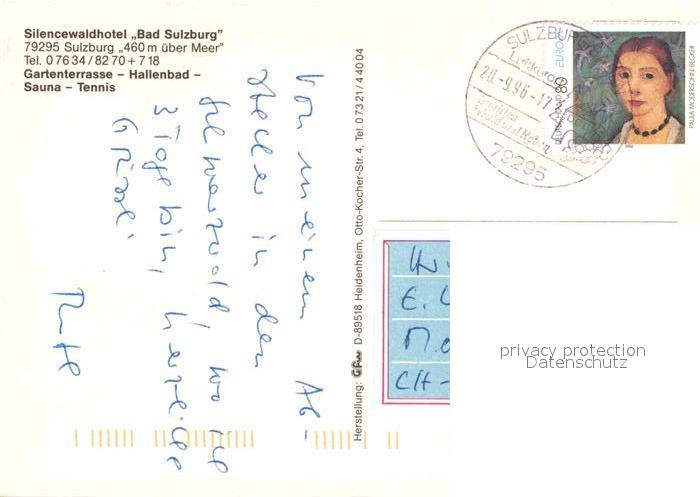 Silencewaldhotel „Bad Sulzburg"
79295 Sulzburg „460 m über Meer"
Tel. 0 76 34 / 82 70 + 7 18
Gartenterrasse – Hallenbad –
Sauna – Tennis
Von meinem Ab-
stecher in den
Schwarzwald, wo ich
3 Tage bin, herzliche
Grüsse!
Ruth
Herstellung: D-89518 Heidenheim, Otto-Kocher-Str. 4, Tel. 0 73 21 / 4 40 04
SULZBURG
Luftkurort
20.-9.96-17
zwischen
Wald und Reben
79295
DEUTSCHLAND 80 EUROPA
PAULA MODERSOHN-BECKER
E.
CH-
privacy protection
Datenschutz